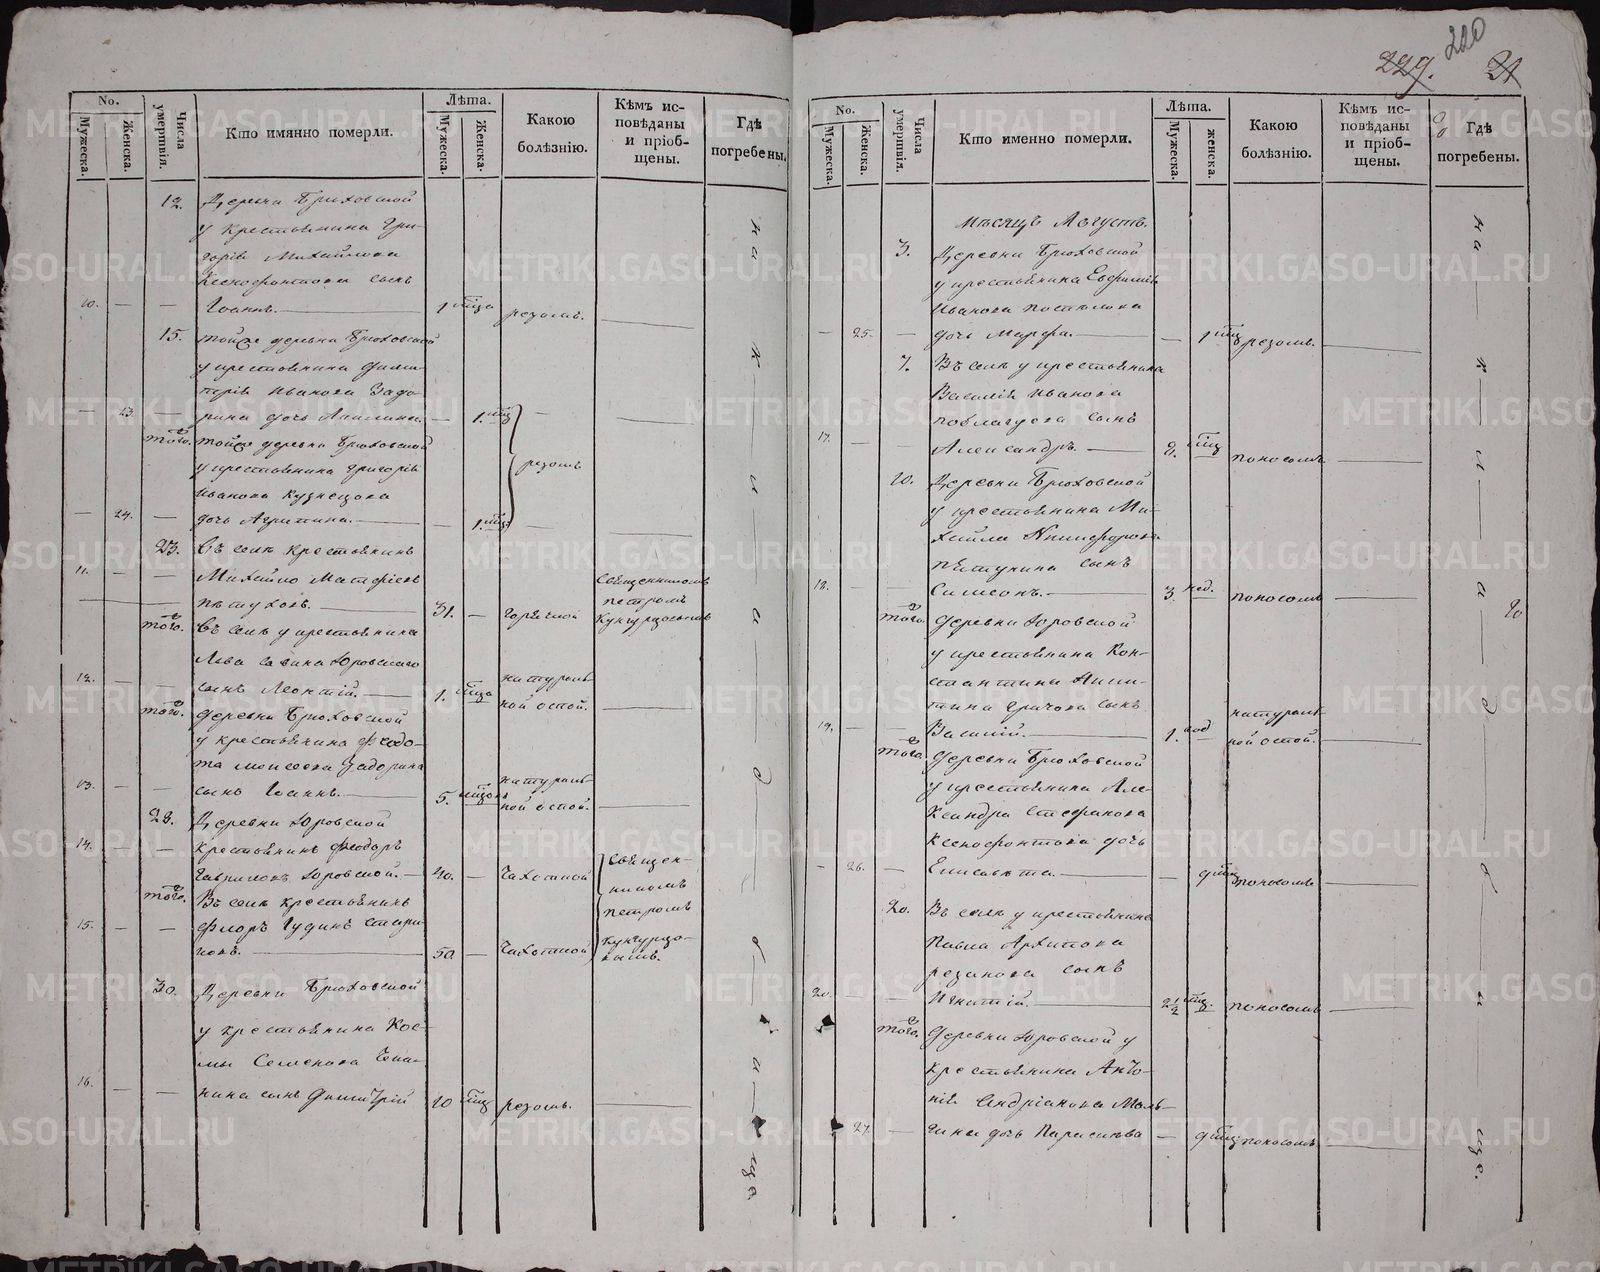 220
229. 21
No.
Мужеска.
Женска.
Числа умертвія.
Кто имянно померли.
Лѣта.
Мужеска.
Женска.
Какою болѣзнію.
Кѣмъ исповѣданы и пріобщены.
Гдѣ погребены.
12. Деревни Брюховской
у крестьянина Гри-
горія Михайлова
Ксенофонтова сынъ
10. — — Іоаннъ. — 1 мѣсяца резомъ.
15. тойже деревни Брюховской
у крестьянина Дими-
трія Иванова Задо-
— 23. — рина дочь Акилина. — 1. мѣц
того. тойже деревни Брюховской
у крестьянина Григорія резомъ
Иванова Кузнецова
— 24. — дочь Агрипина. — 1. мѣц
23. Въ селѣ крестьянинъ
11. — — Михайло Матфіевъ Священникомъ
Пѣтуховъ. — 31. — горячкой Петромъ Кунгурцовымъ
того. Въ селѣ у крестьянина
Льва Савина Юровскаго
12. — — сынъ Леонтій. — 1. мѣсяца натуральной оспой.
того. деревни Брюховской
у крестьянина Федо-
та Моисеева Задорина
13. — — сынъ Іоаннъ. — 5. натуральной оспой.
28. Деревни Юровской
14. — — крестьянинъ Феодоръ
Гавриловъ Юровской. — 40. — чахоткой Священ-
того. Въ селѣ крестьянинъ никомъ
15. — — Флоръ Чудинъ стари- Петромъ
ковъ. — 50. — чахоткой Кунгурцовымъ.
30. Деревни Брюховской
у крестьянина Кос-
мы Семенова
16. — — нина сынъ Димитрій 10 мѣц резомъ.
на кладбище
No.
Мужеска.
Женска.
Числа умертвія.
Кто именно померли.
Лѣта.
Мужеска.
женска.
Какою болѣзнію.
Кѣмъ исповѣданы и пріобщены.
Гдѣ погребены.
Мѣсяцъ Августъ.
3. Деревни Брюховской
у крестьянина Евфимія
Иванова Постылова
— 25. — дочь Марфа. — 1 мѣц резомъ.
7. Въ селѣ у крестьянина
Василія Иванова
сынъ
17. — — Александръ. — 2. мѣц поносомъ.
10. Деревни Брюховской
у крестьянина Ми-
хайла Никифорова
Пѣтухина сынъ
18. — — Симеонъ. — 3. нед. поносомъ
того. деревни Юровской
у крестьянина Кон-
стантина Ники-
тина Грачова сынъ
19. — — Василій. — 1. год натуральной оспой.
того. деревни Брюховской
у крестьянина Але-
ксандра Стефанова
Ксенофонтова дочь
— 26. — Елисавета. — 9 мѣц поносомъ
20. Въ селѣ у крестьянина
Павла Архипова
резанова сынъ
20. — — Игнатій. — 2½ мѣц. поносомъ
того. деревни Юровской у
крестьянина Анто-
нія Андріанова Маль-
— 27. — гина дочь Параскева — 9 мѣц поносомъ
на кладбище.